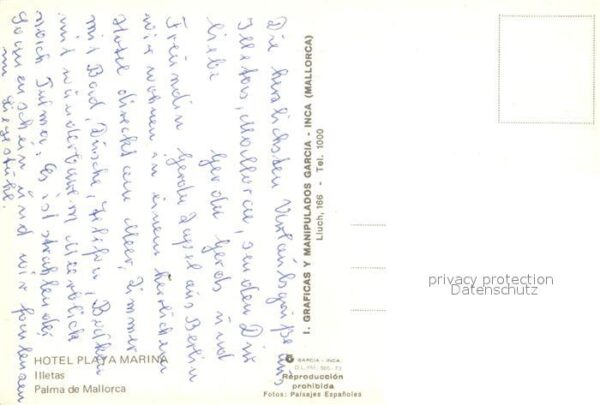 Die herzlichsten Urlaubsgrüße aus
Illetas, Mallorca, senden Dir
liebe Gerda Gerd und
Freundin Gerda aus Berlin
wir wohnen in einem herrlichen
Hotel direckt am Meer, Zimmer
mit Bad, Dusche, Telefon, Balkon
mit wunderbarem Meerblick
nach Palma. Es ist strahlender
Sonnenschein und wir faulenzen
im Liegestuhl.
HOTEL PLAYA MARINA
Illetas
Palma de Mallorca
I. GRAFICAS Y MANIPULADOS GARCIA - INCA (MALLORCA)
Lluch, 166 - Tel. 1000
GARCIA - INCA
Reproducción
prohibida
Fotos: Paisajes Españoles
privacy protection
Datenschutz